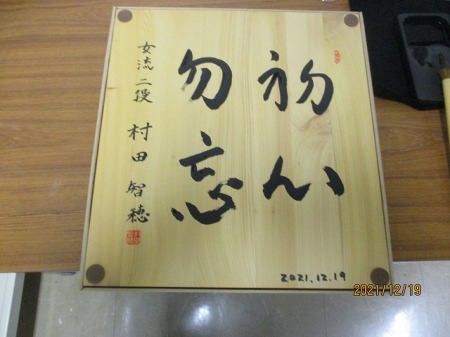 初心
勿忘
女流二段 村田 智穂
2021.12.19
2021/12/19